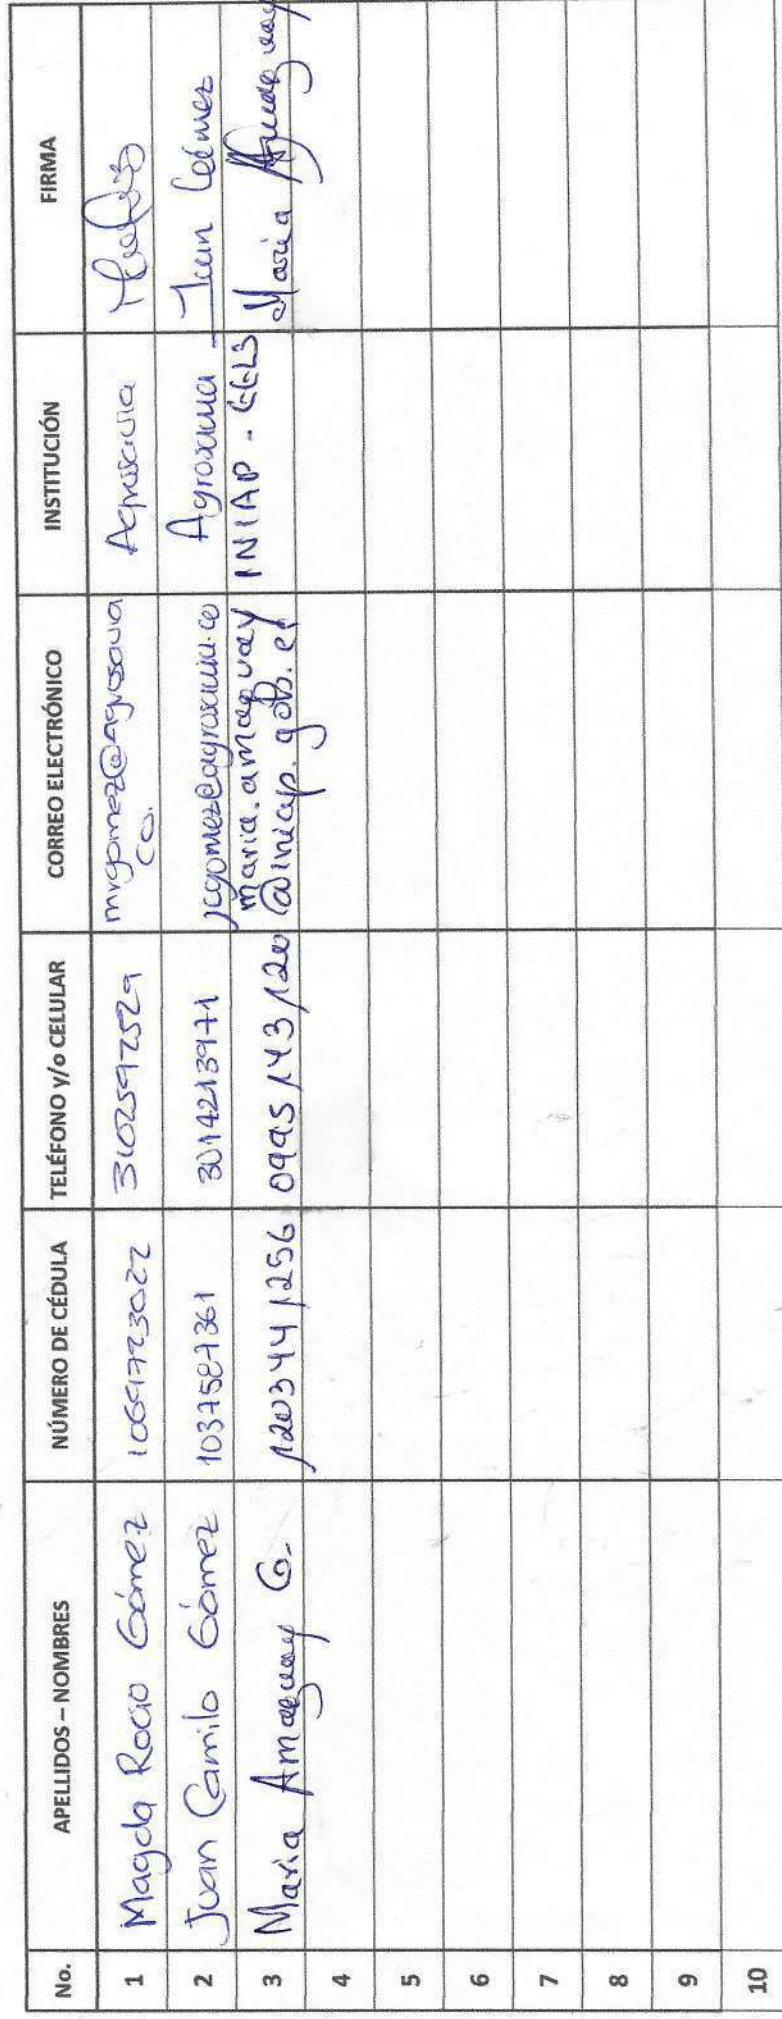 No. APELLIDOS – NOMBRES NÚMERO DE CÉDULA TELÉFONO y/o CELULAR CORREO ELECTRÓNICO INSTITUCIÓN FIRMA
1 Magda Rocio Gómez 1069723022 3102592529 mrgomez@agrosavia Agrosavia
co.
2 Juan Camilo Gómez 1037587361 3014213971 jcgomez@agrosavia.co Agrosavia Juan Gómez
3 Maria Amaguay G. 1203441256 0995143120 maria.amaguay INIAP - EELS Maria Amaguay
@iniap.gob.ec
4
5
6
7
8
9
10